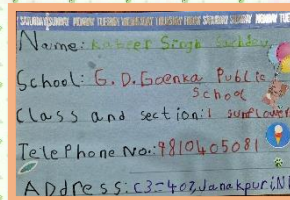 SATURDAY SUNDAY MONDAY TUESDAY WEDNESDAY THURSDAY FRIDAY SATURDAY SUNDAY MONDAY TUE
Name: Kabeer Singh Sachdev
School: G. D. Goenka Public
School
Class and section: 1 sunflower
Telephone No.: 9810405081
Address: C3-402, Janakpuri N